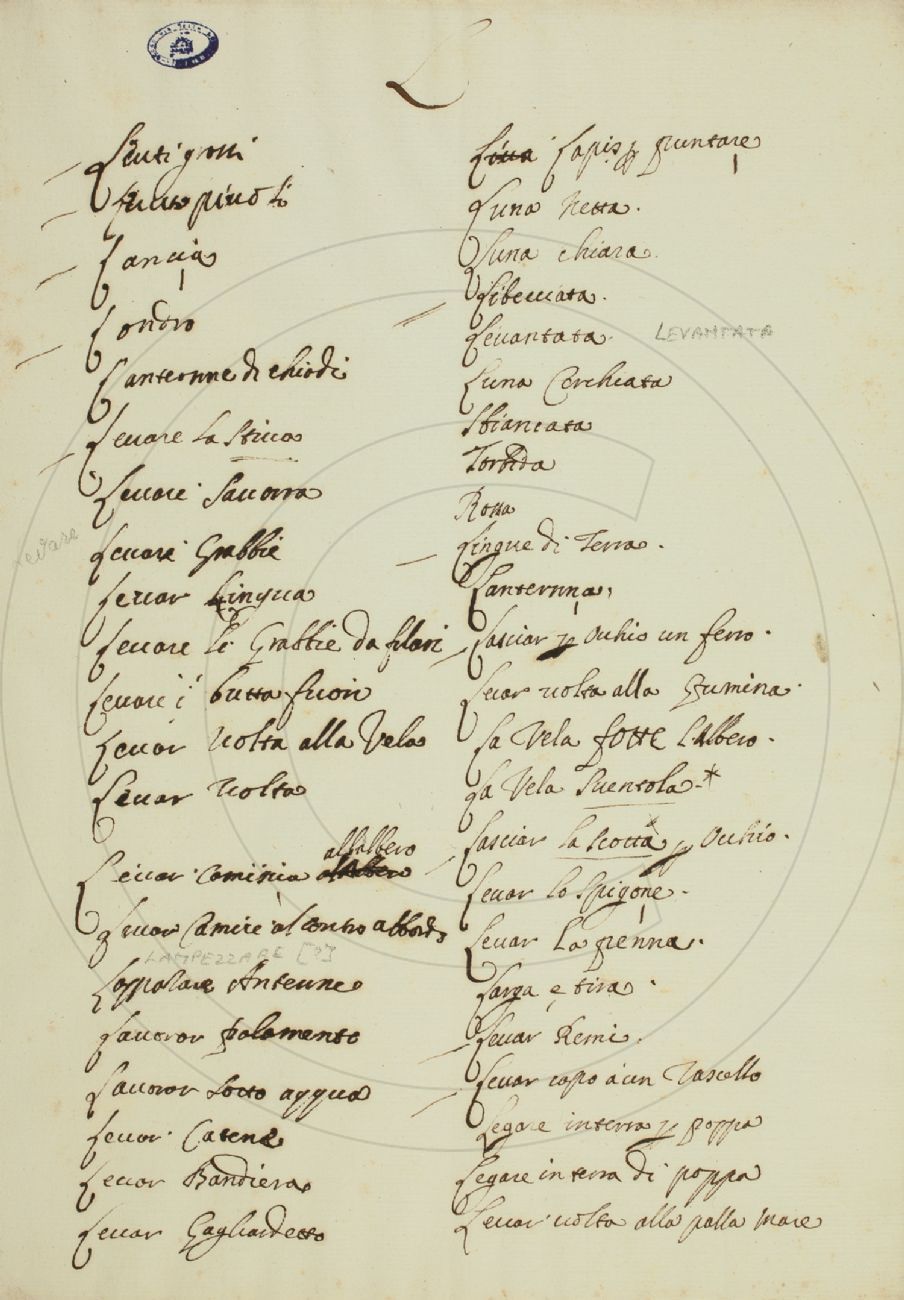 L
Lenti grossi
Lancia
Londro
Lanternne di chiodi
Leuare La Stiua
Leuare Sauorra
Leuare Grabbie
Leuar Lingua
Leuare le Grabbie da filari
Leuare i butta fuori
Leuar uolta alla Vela
Leuar uolta
Leuar camisia all albero
Leuar Camise al contro abbordo
LAMPEZZARE [?]
Antenne
Lauorar palamento
Lauorar sotto acqua
Leuar Catene
Leuar Bandiera
Leuar Gagliardetto
Levare
Lapis p puntare
Luna Netta.
Luna chiara.
Libecciata.
Leuantata. LEVANTATA
Luna Cerchiata
Sbiancata
Torbida
Rossa
Lingue di Terra.
Lanternna,
Lasciar p Ochio un ferro.
Leuar uolta alla Gumina.
La Vela fotte L'Albero.
La Vela Suentola.*
Lasciar la scotta p Occhio.
Leuar lo Spigone.
Leuar La penna.
Larga e tira.
Leuar Remi.
Leuar capo a un Vascello
Legare in terra p poppa
Legare in terra di poppa
Leuar uolta alla palla mare